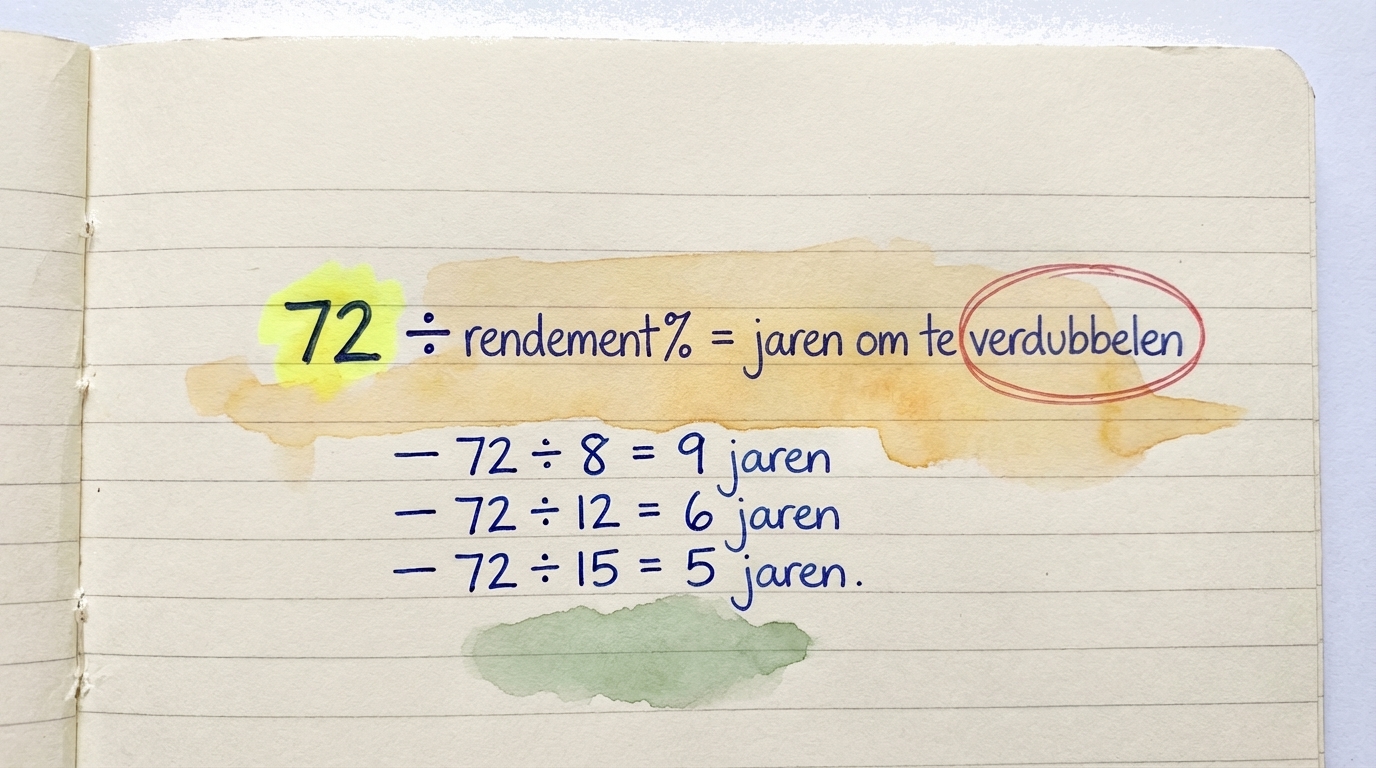 72 ÷ rendement% = jaren om te verdubbelen
— 72 ÷ 8 = 9 jaren
— 72 ÷ 12 = 6 jaren
— 72 ÷ 15 = 5 jaren.